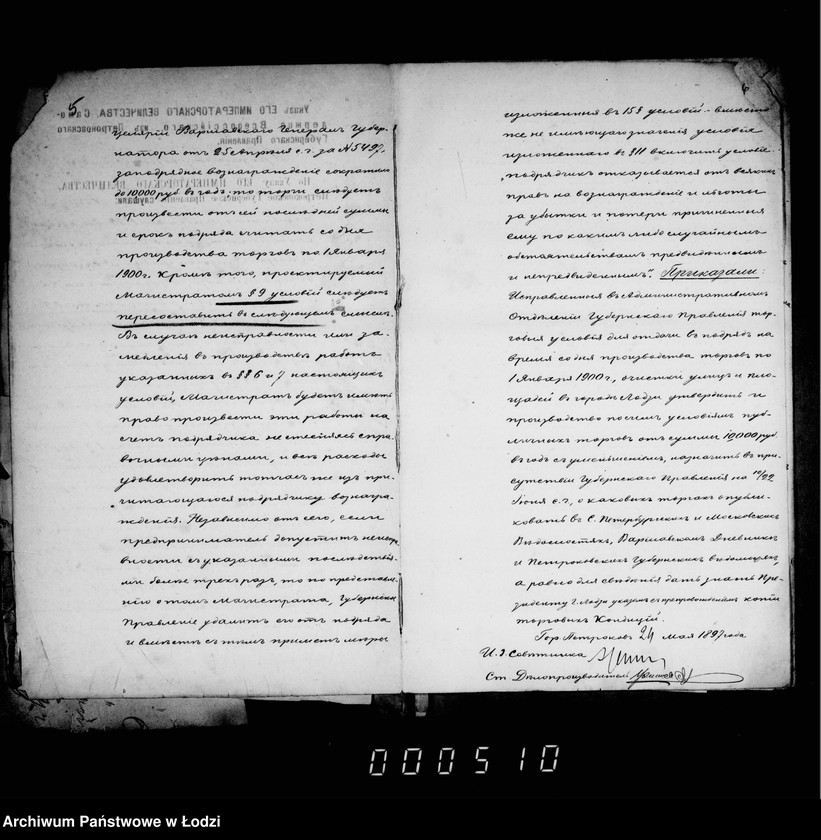 5
целяріи Варшавскаго Генералъ Губер-
натора отъ 25 апрѣля с.г. за № 5497,
заподрядное вознагражденіе сократить
до 10000 руб. въ годъ, то торги слѣдуетъ
произвести отъ сей послѣдней суммы
и срокъ подряда считать со дня
производства торговъ по 1 Января
1900 г. Кромѣ того, проектируемый
Магистратомъ § 9 условій слѣдуетъ
пересоставить въ слѣдующемъ смыслѣ.
Въ случаѣ неисправности или за-
медленія въ производствѣ работъ
указанныхъ въ §§ 6 и 7 настоящихъ
условій, Магистратъ будетъ имѣть
право произвести эти работы на
счетъ подрядчика не стѣсняясь спра-
вочными цѣнами, и всѣ расходы
удовлетворить тотчасъ же изъ при-
читающагося подрядчику вознагра-
жденія. Независимо отъ сего, если
предприниматель допуститъ неиспра-
вности съ указанными послѣдствія-
ми болѣе трехъ разъ, то по представле-
нію о томъ Магистрата, Губернское
Правленіе удалитъ его отъ подряда
и вмѣстѣ съ тѣмъ приметъ мѣры
6
изложенныя въ 15 § условій - вмѣсто
же не имѣющаго значенія условія
изложеннаго въ § 11 включить условіе:
"подрядчикъ отказывается отъ всякихъ
правъ на вознагражденіе и льготы
за убытки и потери причиненныя
ему по какимъ либо случайнымъ
обстоятельствамъ предвидѣннымъ
и непредвидѣннымъ". Приказали:
Исправленныя въ Административномъ
Отдѣленіи Губернскаго Правленія тор-
говыя условія для отдачи въ подрядъ на
время со дня производства торговъ по
1 Января 1900 г., очистки улицъ и пло-
щадей въ городѣ Лодзи утвердить и
производство по симъ условіямъ пуб-
личныхъ торговъ отъ суммы 10,000 руб.
въ годъ съ уменьшеніемъ, назначить въ при-
сутствіи Губернскаго Правленія на 10/22
Іюня с.г., о каковыхъ торгахъ опубли-
ковать въ С. Петербургскихъ и Московскихъ
Вѣдомостяхъ, Варшавскомъ Дневникѣ
и Петроковскихъ Губернскихъ вѣдомостяхъ,
а равно для свѣдѣнія дать знать Пре-
зиденту г. Лодзи указомъ съ препровожденіемъ копіи
торговыхъ Кондицій.
Гор. Петроковъ 24 мая 1897 года
И. д. Совѣтника
Ст. Дѣлопроизводитель
000510
Archiwum Państwowe w Łodzi